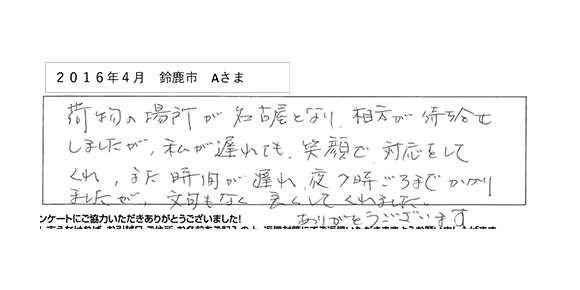 2016年4月　鈴鹿市　Aさま
荷物の場所が名古屋となり、相方が待合せ
しましたが、私が遅れても、笑顔で対応をして
くれ、また時間が遅れ、夜7時ごろまでかかり
ましたが、文句もなく良くしてくれました。
ありがとうございます
ンケートにご協力いただきありがとうございました!